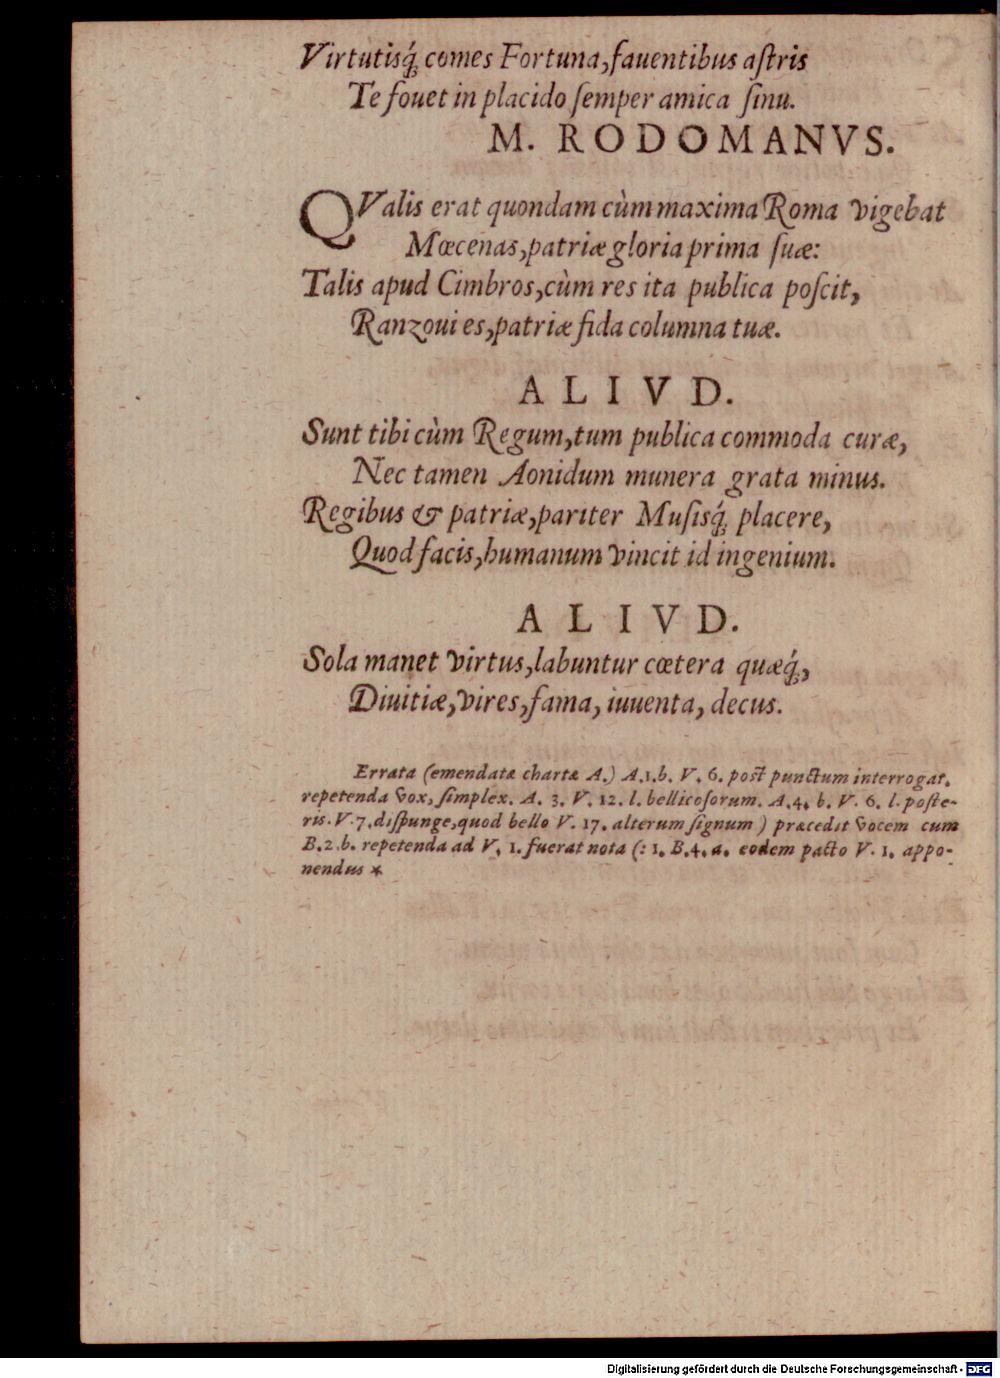 Virtutisq́; comes Fortuna, fauentibus aſtris
Te fouet in placido ſemper amica ſinu.
M. RODOMANVS.
QValis erat quondam cùm maxima Roma vigebat
Mœcenas, patriæ gloria prima ſuæ:
Talis apud Cimbros, cùm res ita publica poſcit,
Ranzoui es, patriæ fida columna tuæ.
ALIVD.
Sunt tibi cùm Regum, tum publica commoda curæ,
Nec tamen Aonidum munera grata minus.
Regibus & patriæ, pariter Muſisq́; placere,
Quod facis, humanum vincit id ingenium.
ALIVD.
Sola manet virtus, labuntur cœtera quæq́;,
Diuitiæ, vires, fama, iuuenta, decus.
Errata (emendatæ chartæ A.) A.1.b. V. 6. poſt punctum interrogat.
repetenda vox, ſimplex. A. 3. V. 12. l. bellicoſorum. A.4. b. V. 6. l. poſte-
ris. V. 7. diſpunge, quod bello V. 17. alterum ſignum ) præcedit vocem cum
B.2.b. repetenda ad V. 1. fuerat nota (: 1. B.4.a. eodem pacto V. 1. appo-
nendus *
Digitalisierung gefördert durch die Deutsche Forschungsgemeinschaft - DFG